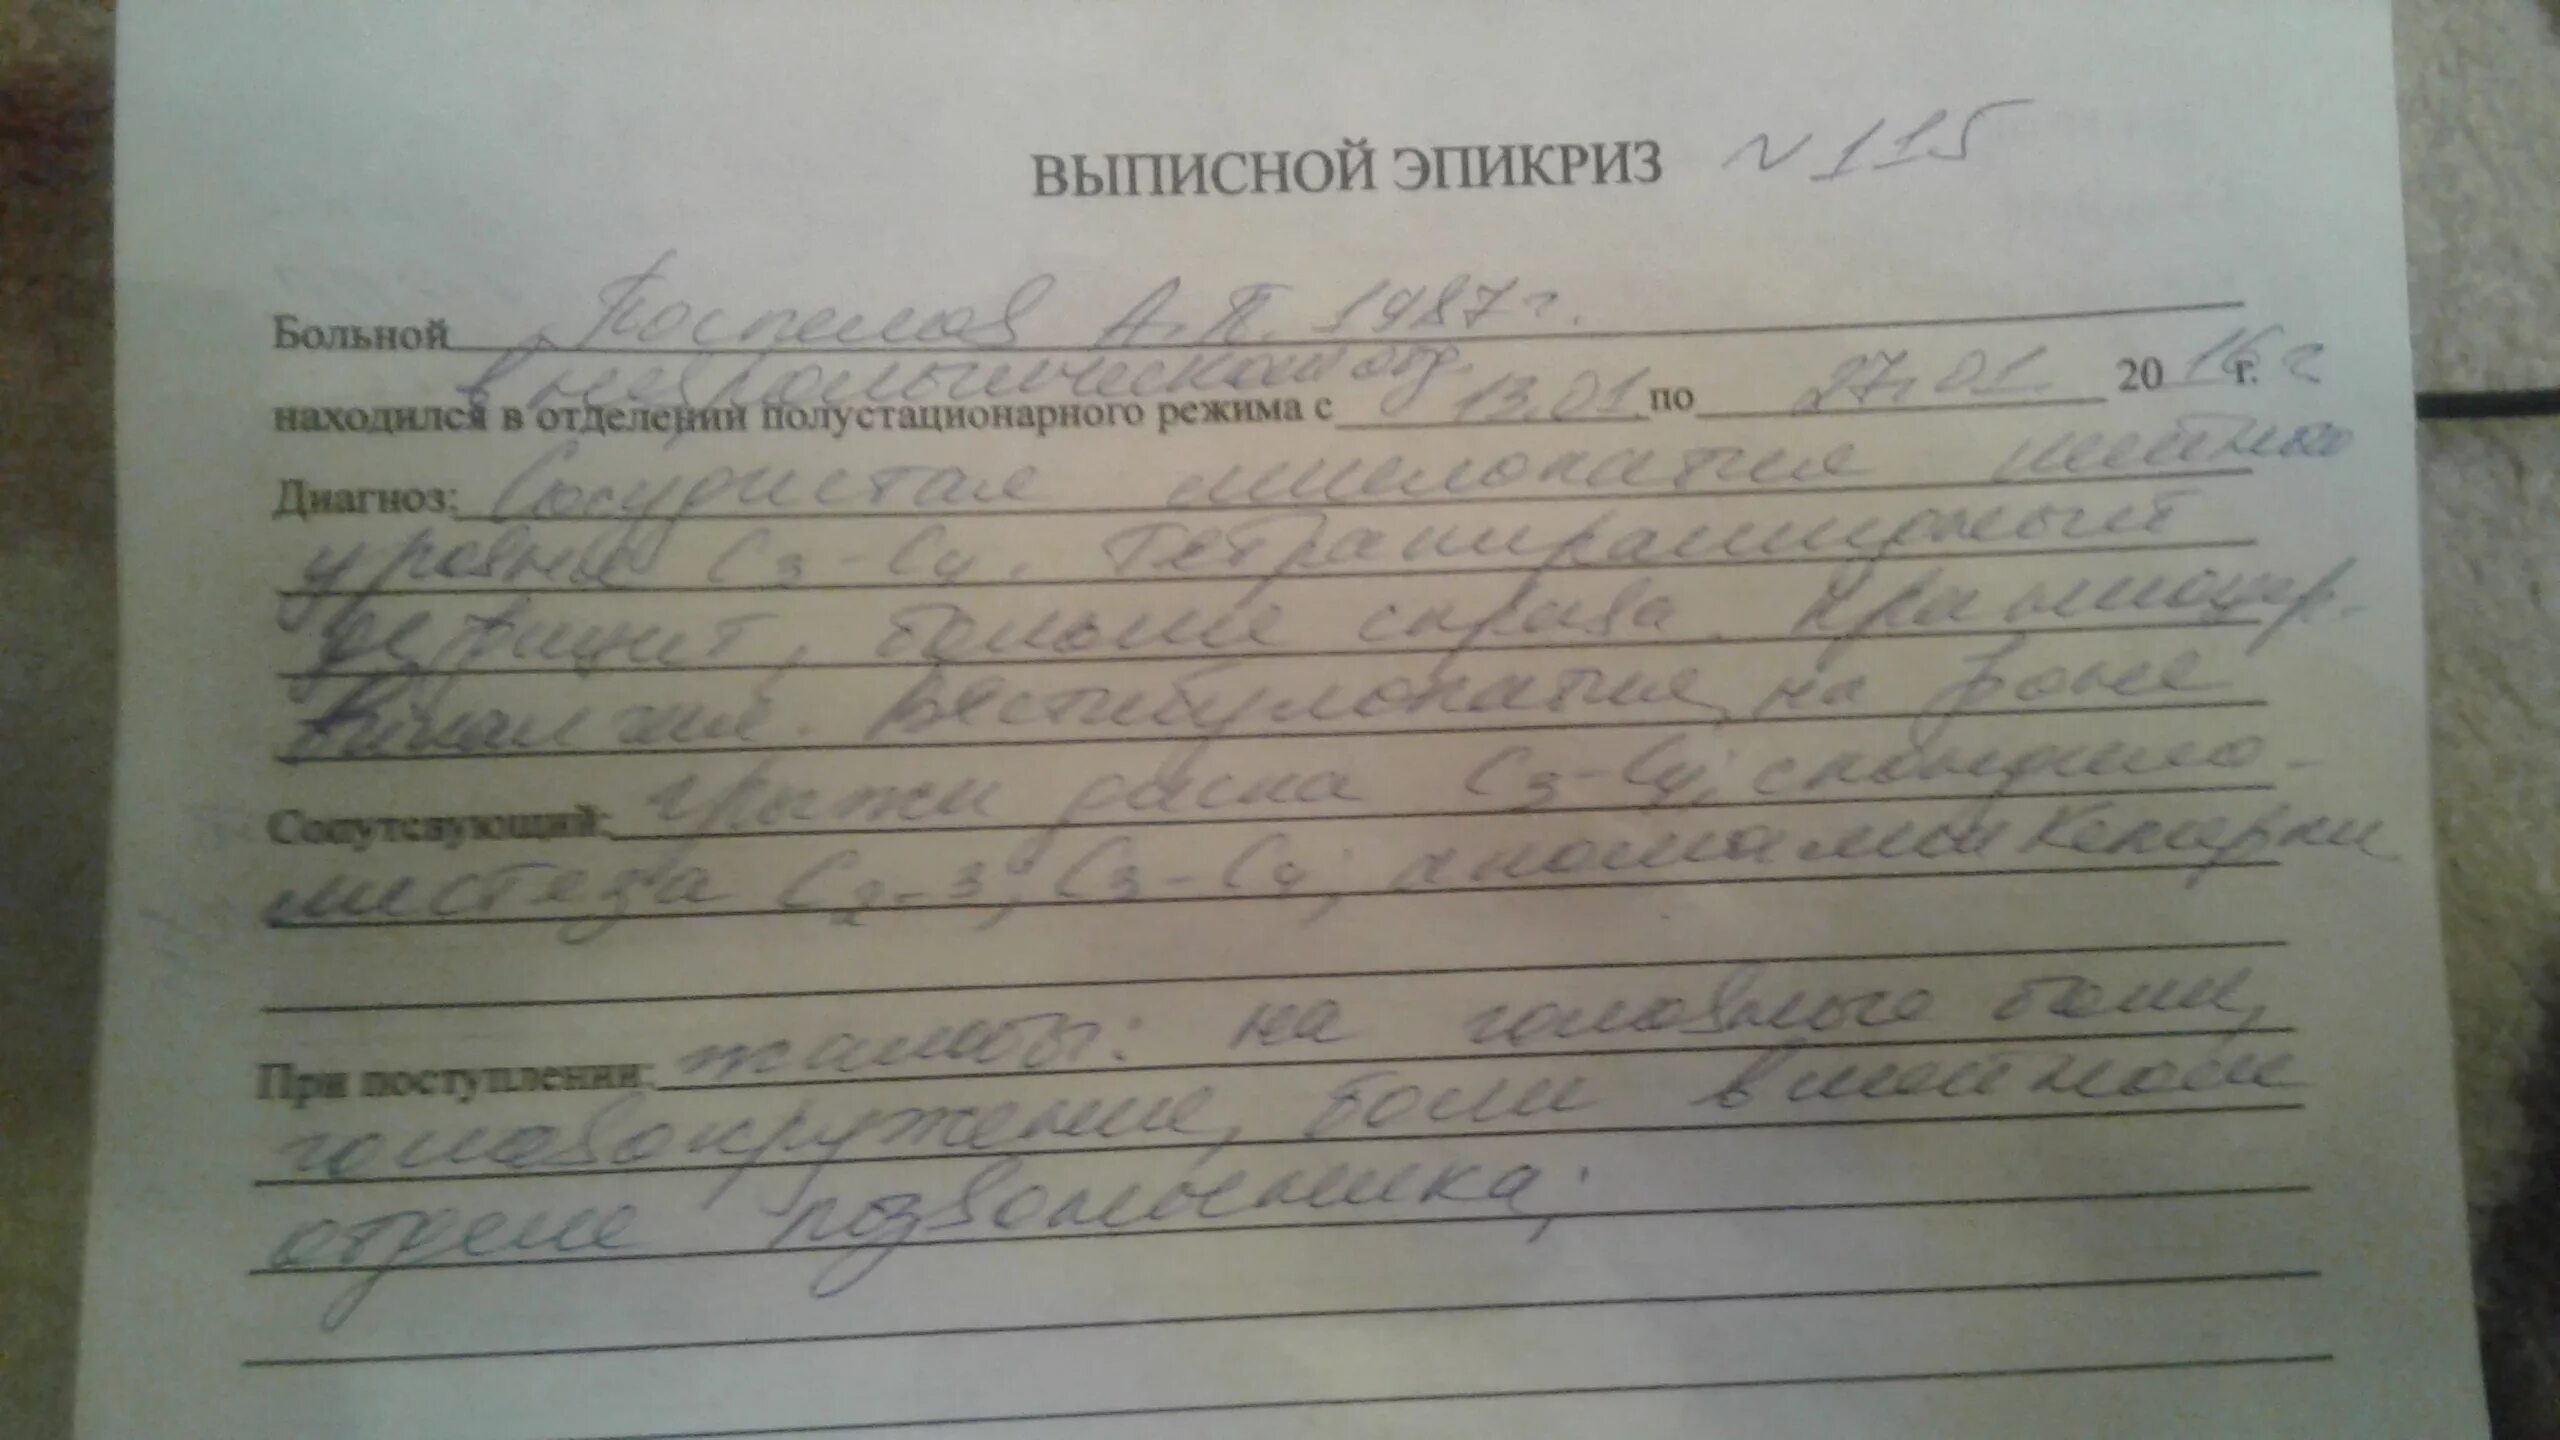 ВЫПИСНОЙ ЭПИКРИЗ N 115
Больной Поспелов А.П. 1987 г.
в неврологическом отд.
находился в отделении полустационарного режима с 13.01 по 27.01. 2016 г. г
Диагноз: Сосудистая миелопатия шейного
уровня C3-C4. Тетрапирамидный
дефицит, больше справа. Краниоцер-
викалгия. Вестибулопатия на фоне
Сопутсвующий: грыжи диска C3-C4; спондило-
листеза C2-3; C3-C4; аномалии Кеммерли
При поступлении: жалобы: на головные боли,
головокружение, боли в шейном
отделе позвоночника;